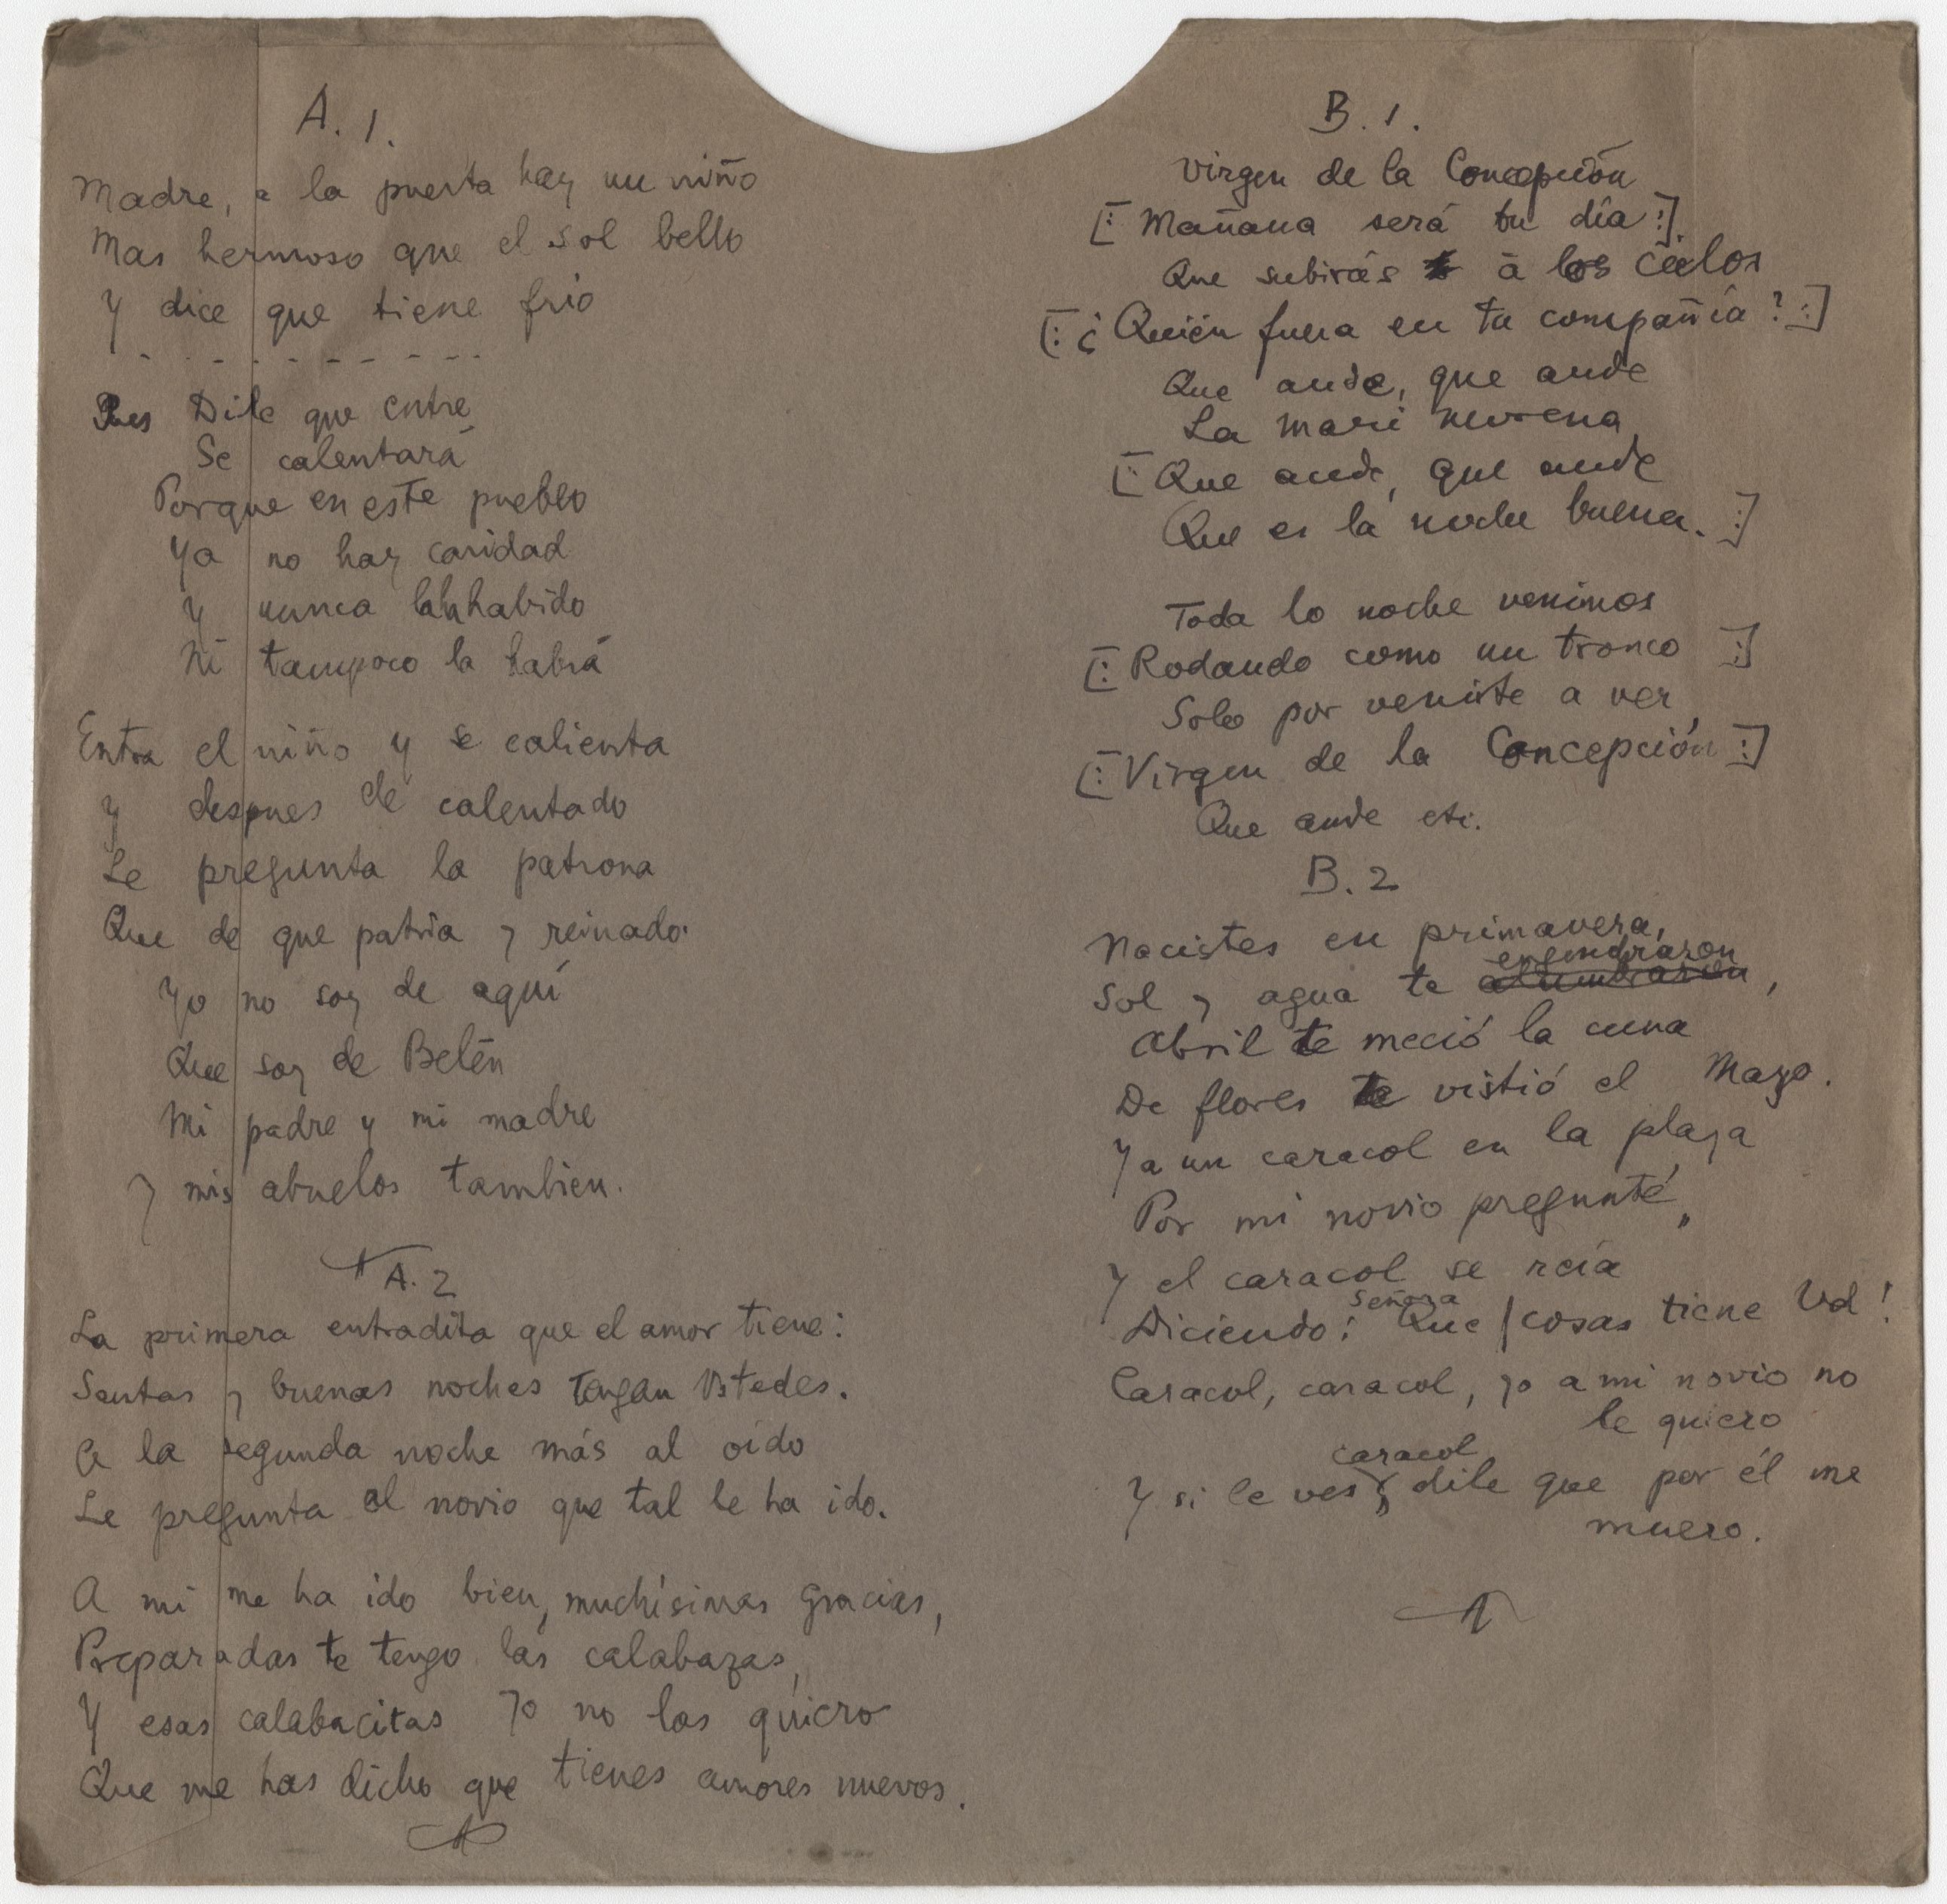 A. 1.
Madre, a la puerta hay un niño
Mas hermoso que el sol bello
Y dice que tiene frio
- - - - - - - - - -
Pues Dile que entre
Se calentará
Porque en este pueblo
Ya no hay caridad
Y nunca la ha habido
Ni tampoco la habrá
Entra el niño y se calienta
Y despues de calentado
Le pregunta la patrona
Que de que patria y reinado.
Yo no soy de aquí
Que soy de Belén
Mi padre y mi madre
Y mis abuelos tambien.
A. 2
La primera entradita que el amor tiene:
Santas y buenas noches tengan Ustedes.
A la segunda noche más al oído
Le pregunta al novio que tal le ha ido.
A mi me ha ido bien, muchísimas gracias,
Preparadas te tengo las calabazas,
Y esas calabacitas yo no las quiero
Que me has dicho que tienes amores nuevos.
B. 1.
Virgen de la Concepción
[: Mañana será tu día :]
Que subirás á los cielos
[: ¿Quién fuera en tu compañía? :]
Que ande, que ande
La mari morena
[: Que ande, que ande
Que es la noche buena. :]
Toda la noche venimos
[: Rodando como un tronco :]
Solo por venirte a ver,
[: Virgen de la Concepción :]
Que ande etc.
B. 2
Nacistes en primavera,
engendraron
Sol y agua te alumbraron,
Abril te meció la cuna
De flores te vistió el Mayo.
Y a un caracol en la plaza
Por mi novio pregunté,
Y el caracol se reía
Señora
Diciendo: Que cosas tiene Vd!
Caracol, caracol, yo a mi novio no
le quiero
caracol,
Y si le ves, dile que por él me
muero.